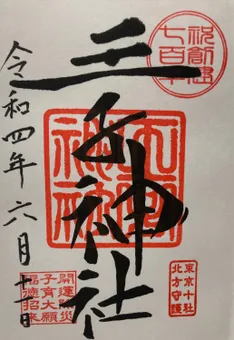 祝創建
七百年
王子神社
東京十社
北方守護
開運除災
子育大願
福徳招来
令和四年六月